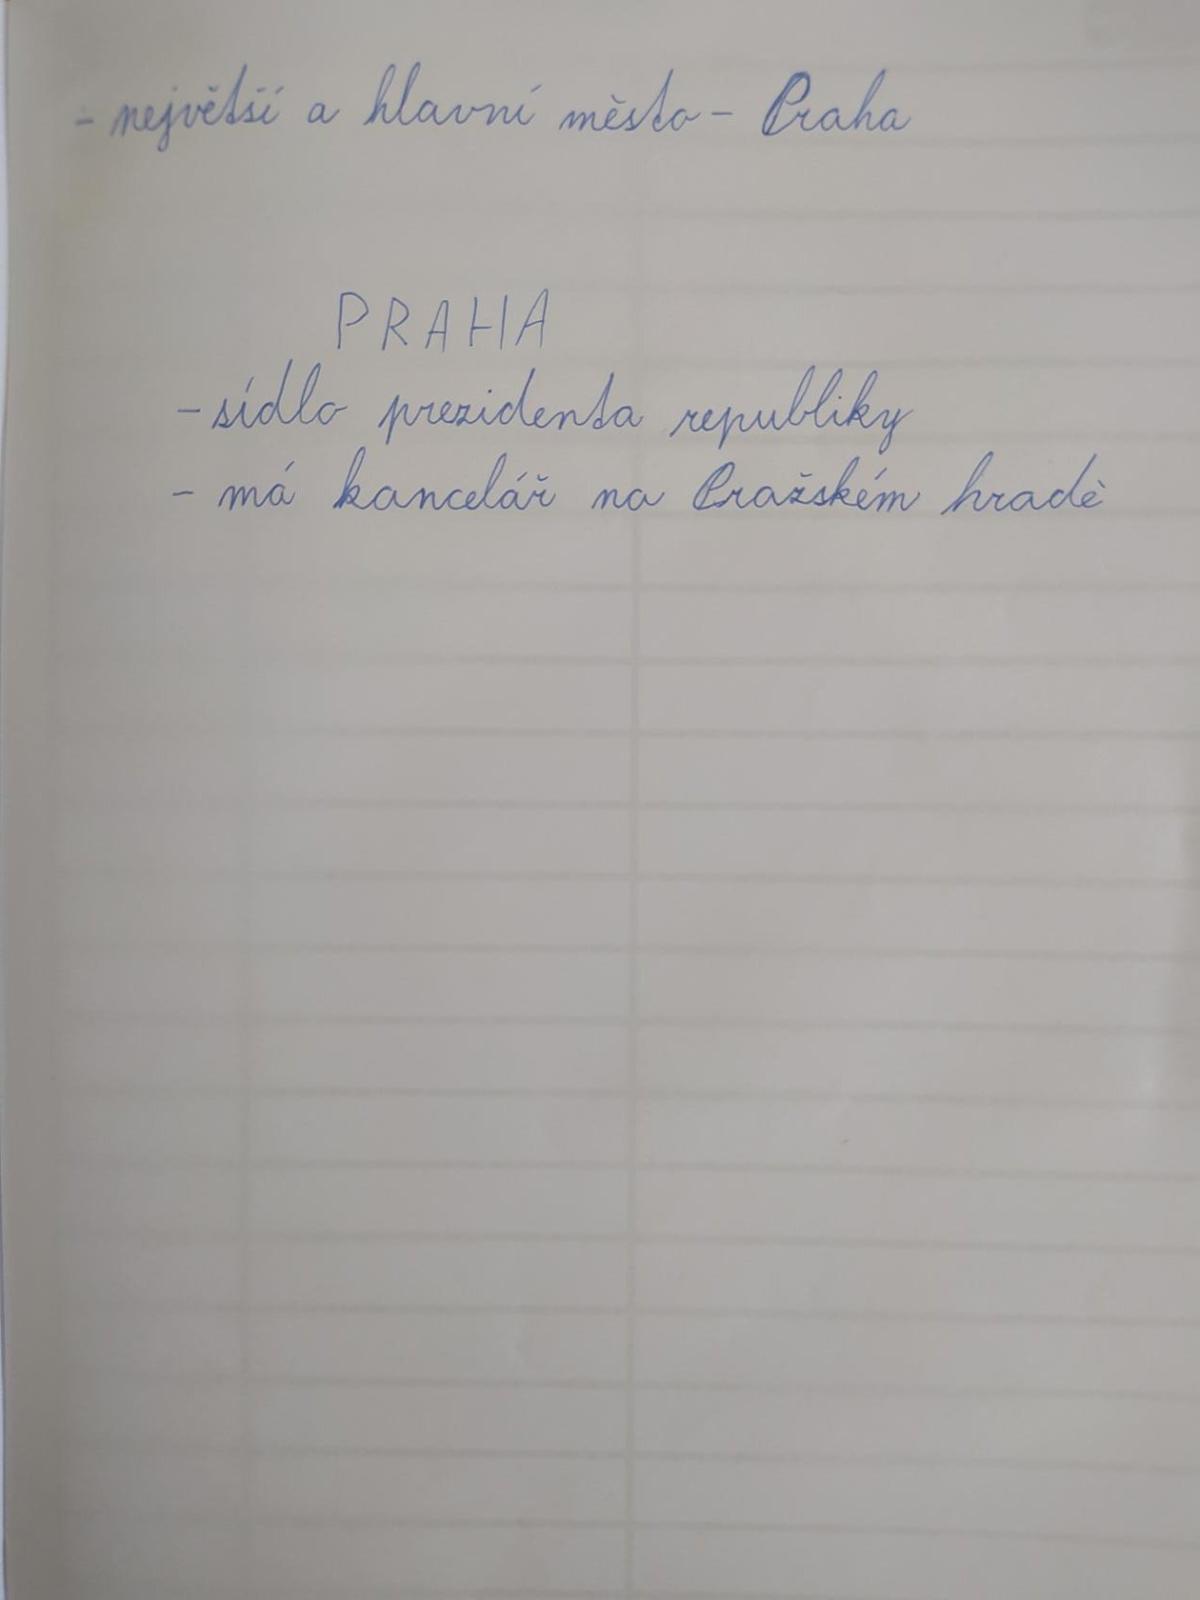 - největší a hlavní město - Praha
PRAHA
- sídlo prezidenta republiky
- má kancelář na Pražském hradě